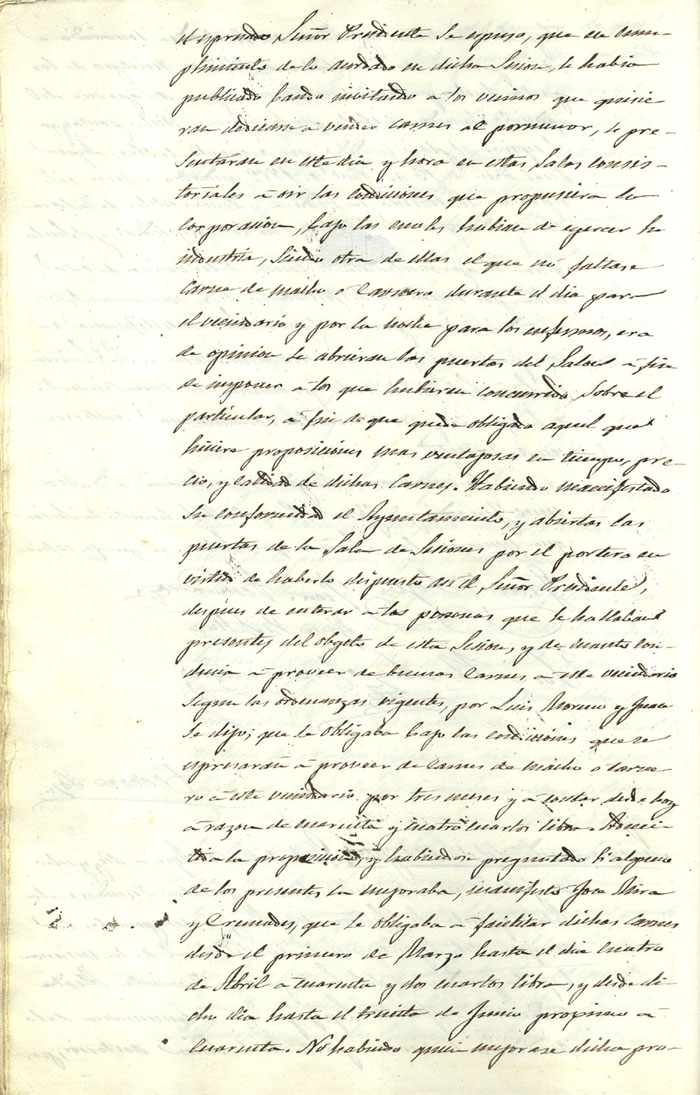 el espresado Señor Presidente se espuso, que en cum-
plimiento de lo acordado en dicha Sesion, se habia
publicado bando invitando a los vecinos que quisie-
ran dedicarse a vender carnes al pormenor, se pre-
sentaran en este dia y hora en estas Salas consis-
toriales á oir las condiciones que propusiera la
corporacion, bajo las cuales habian de egercer la
industria, siendo otra de ellas el que no faltase
carne de macho ó carnero durante el dia para
el vecindario y por la noche para los enfermos, era
de opinion se abrieran las puertas del Salon á fin
de imponer a los que hubieran concurrido sobre el
particular, á fin de que quede obligado aquel que
hiciere proposiciones mas ventajosas en tiempo, pre-
cio, y calidad de dichas carnes. Habiendo manifestado
su conformidad el Ayuntamiento, y abiertas las
puertas de la Sala de Sesiones por el portero en
virtud de haberlo dispuesto asi el Señor Presidente,
despues de enterar a las personas que se hallaban
presentes del objeto de esta Sesion, y de cuanto con-
ducia á proveer de buenas carnes a este vecindario
segun las ordenanzas vigentes, por Luis Moreno y Juan
se dijo; que se obligaba bajo las condiciones que se
espresarán á proveer de carnes de macho o carne-
ro a este vecindario por tres meses y a contar desde hoy
á razon de cuarenta y cuatro cuartos libra. Admi-
tida la proposicion, y habiendose preguntado si alguno
de los presentes la mejoraba, manifestó Jose Mira
y Cremades, que se obligaba a facilitar dichas carnes
desde el primero de Marzo hasta el dia cuatro
de Abril a cuarenta y dos cuartos libra, y desde di-
cho dia hasta el treinta de Junio proximo á
cuarenta. No habiendo quien mejorase dicha pro-